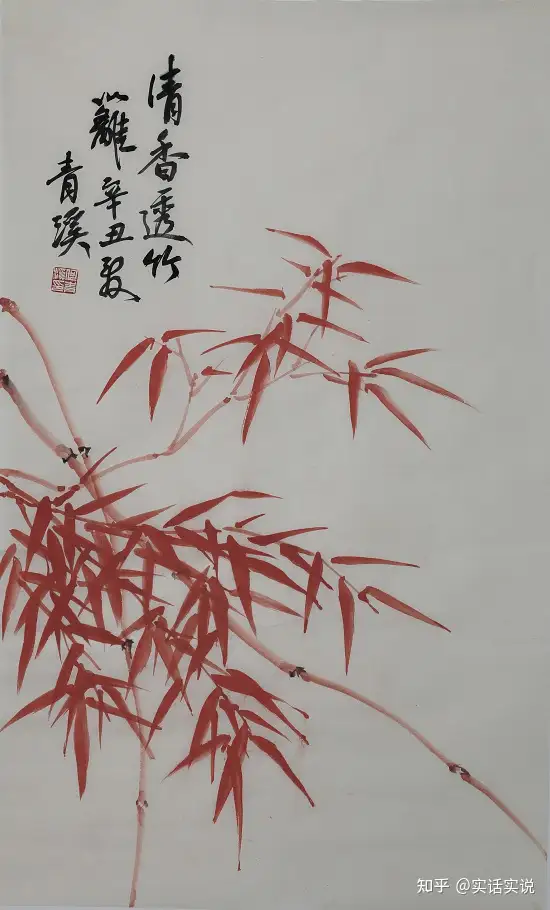 清香透竹
籬辛丑夏
青溪
知乎 @实话实说